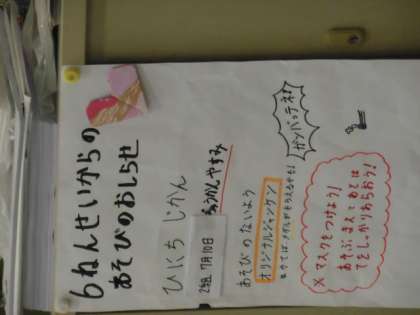 6ねんせいからの
あそびのおしらせ
ひにち じかん
2年2組 7月10日 ちゅうかんやすみ
あそびのないよう
オリジナルジャンケン
ガンバッテネ!
※マスクをつけよう!
あそぶまえとあとは
てをしっかりあらおう!